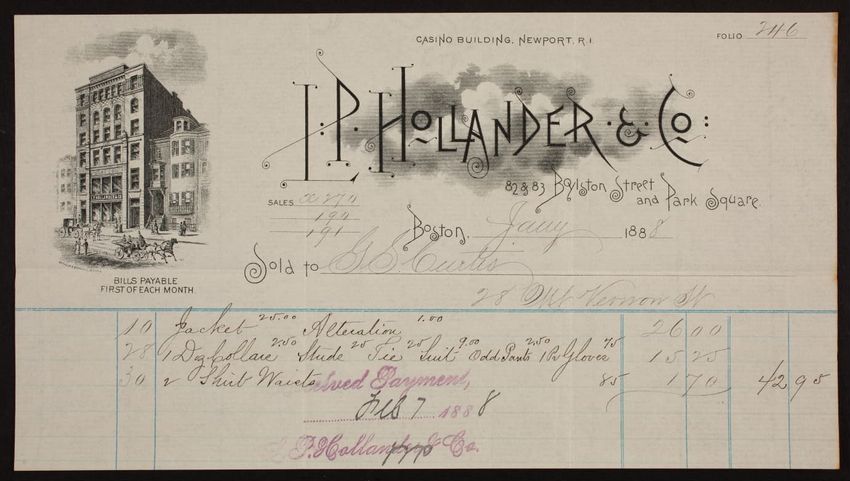 CASINO BUILDING, NEWPORT, R.I.
FOLIO 246
L.P. HOLLANDER & CO:
82 & 83 Boylston Street
and Park Square.
SALES 274
194
191
Boston, Jany 1888
Sold to G S Curtis
28 Mt Vernon St
BILLS PAYABLE
FIRST OF EACH MONTH.
10 Jacket 25.00 Alteration 1.00 26 00
28 1 Dz Collars 2.50 Stude 25 Tie 25 Suit 9.00 Odd Pants 2.50 1 Pr Gloves 75 15 25
30 2 Shirt Waists 85 1 70 42 95
ived Payment,
Feb 7 1888
P. Hollander & Co.